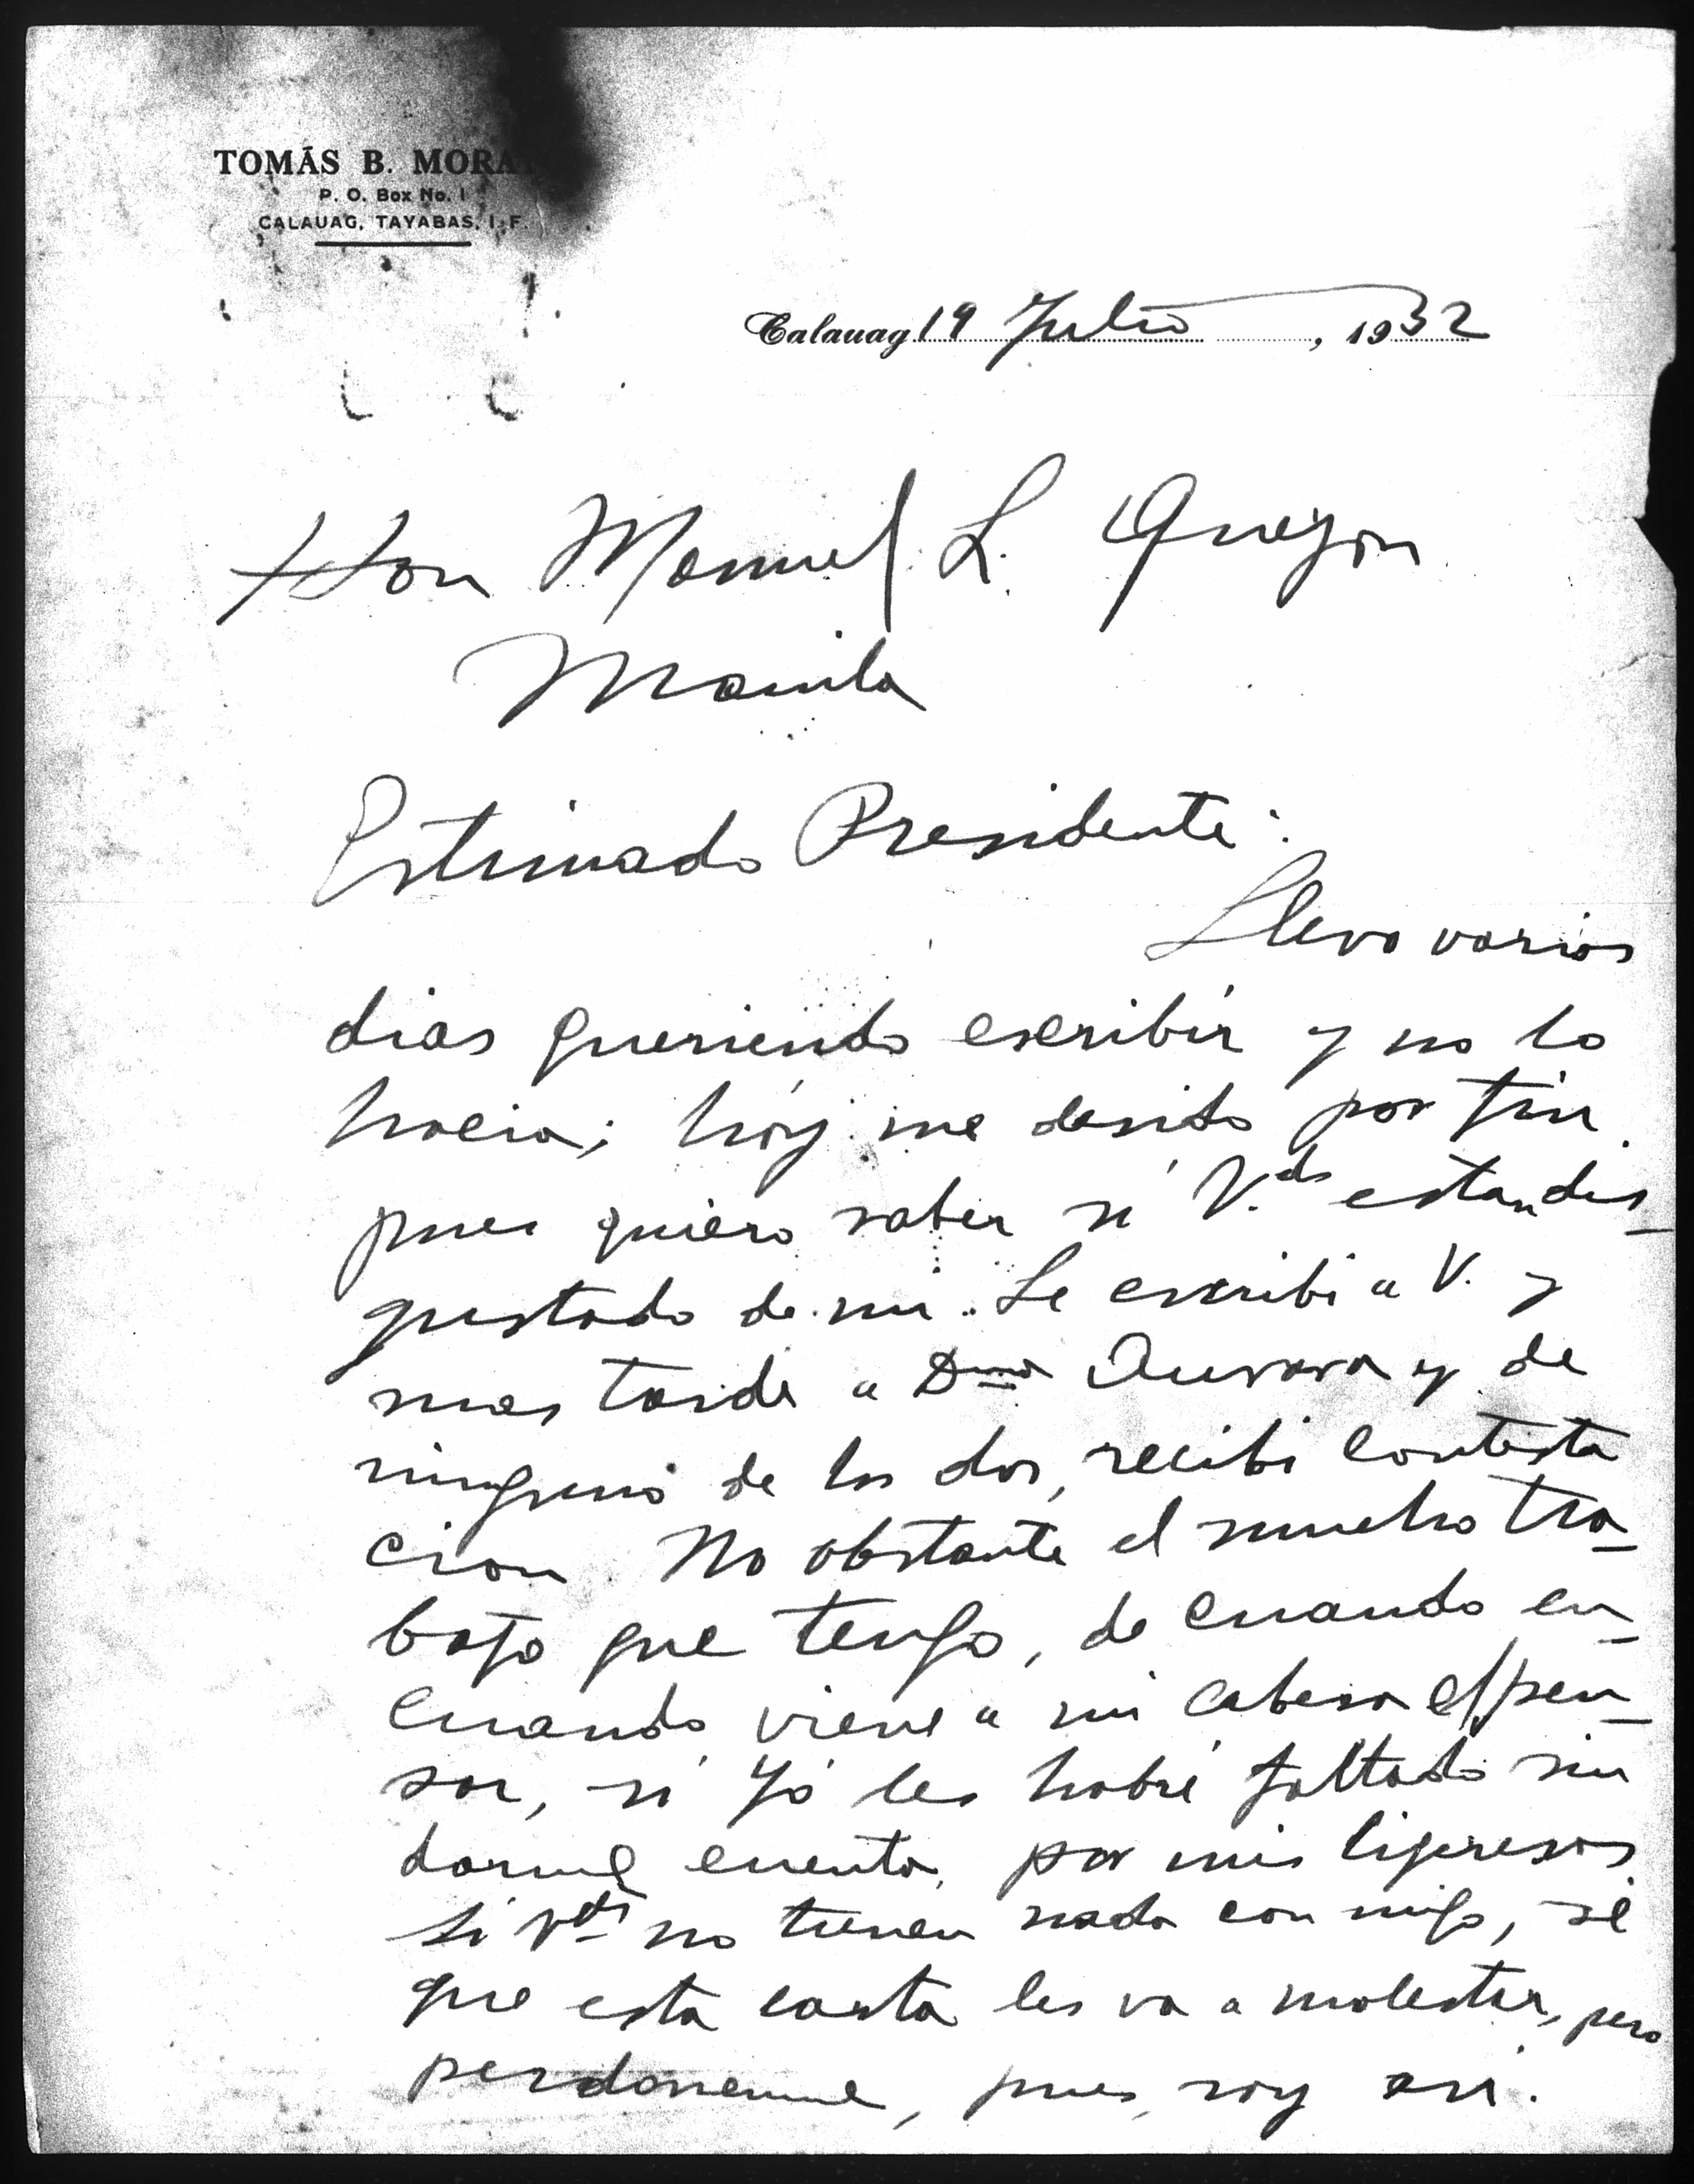 TOMÁS B. MORA
P. O. Box No. 1
CALAUAG, TAYABAS, I. F.
Calauag 19 Julio, 1932
Hon Manuel L. Quezon
Manila
Estimado Presidente:
Llevo varios
dias queriendo escribir y no lo
hacia; hoy me desido por fin
pues quiero saber si V.ds estan dis-
gustado de mi. Le escribi a V. y
mas tarde a Dña Aurora y de
ninguno de los dos, recibi contesta
cion No obstante el mucho tra-
bajo que tengo, de cuando en-
cuando viene a mi cabesa el pen-
sar, si Yó les habré faltado sin
darme cuenta, por mis ligeresas
Si Vds no tienen nada con migo, sé
que esta carta les va a molestar, pero
perdoneme, pues, soy asi.